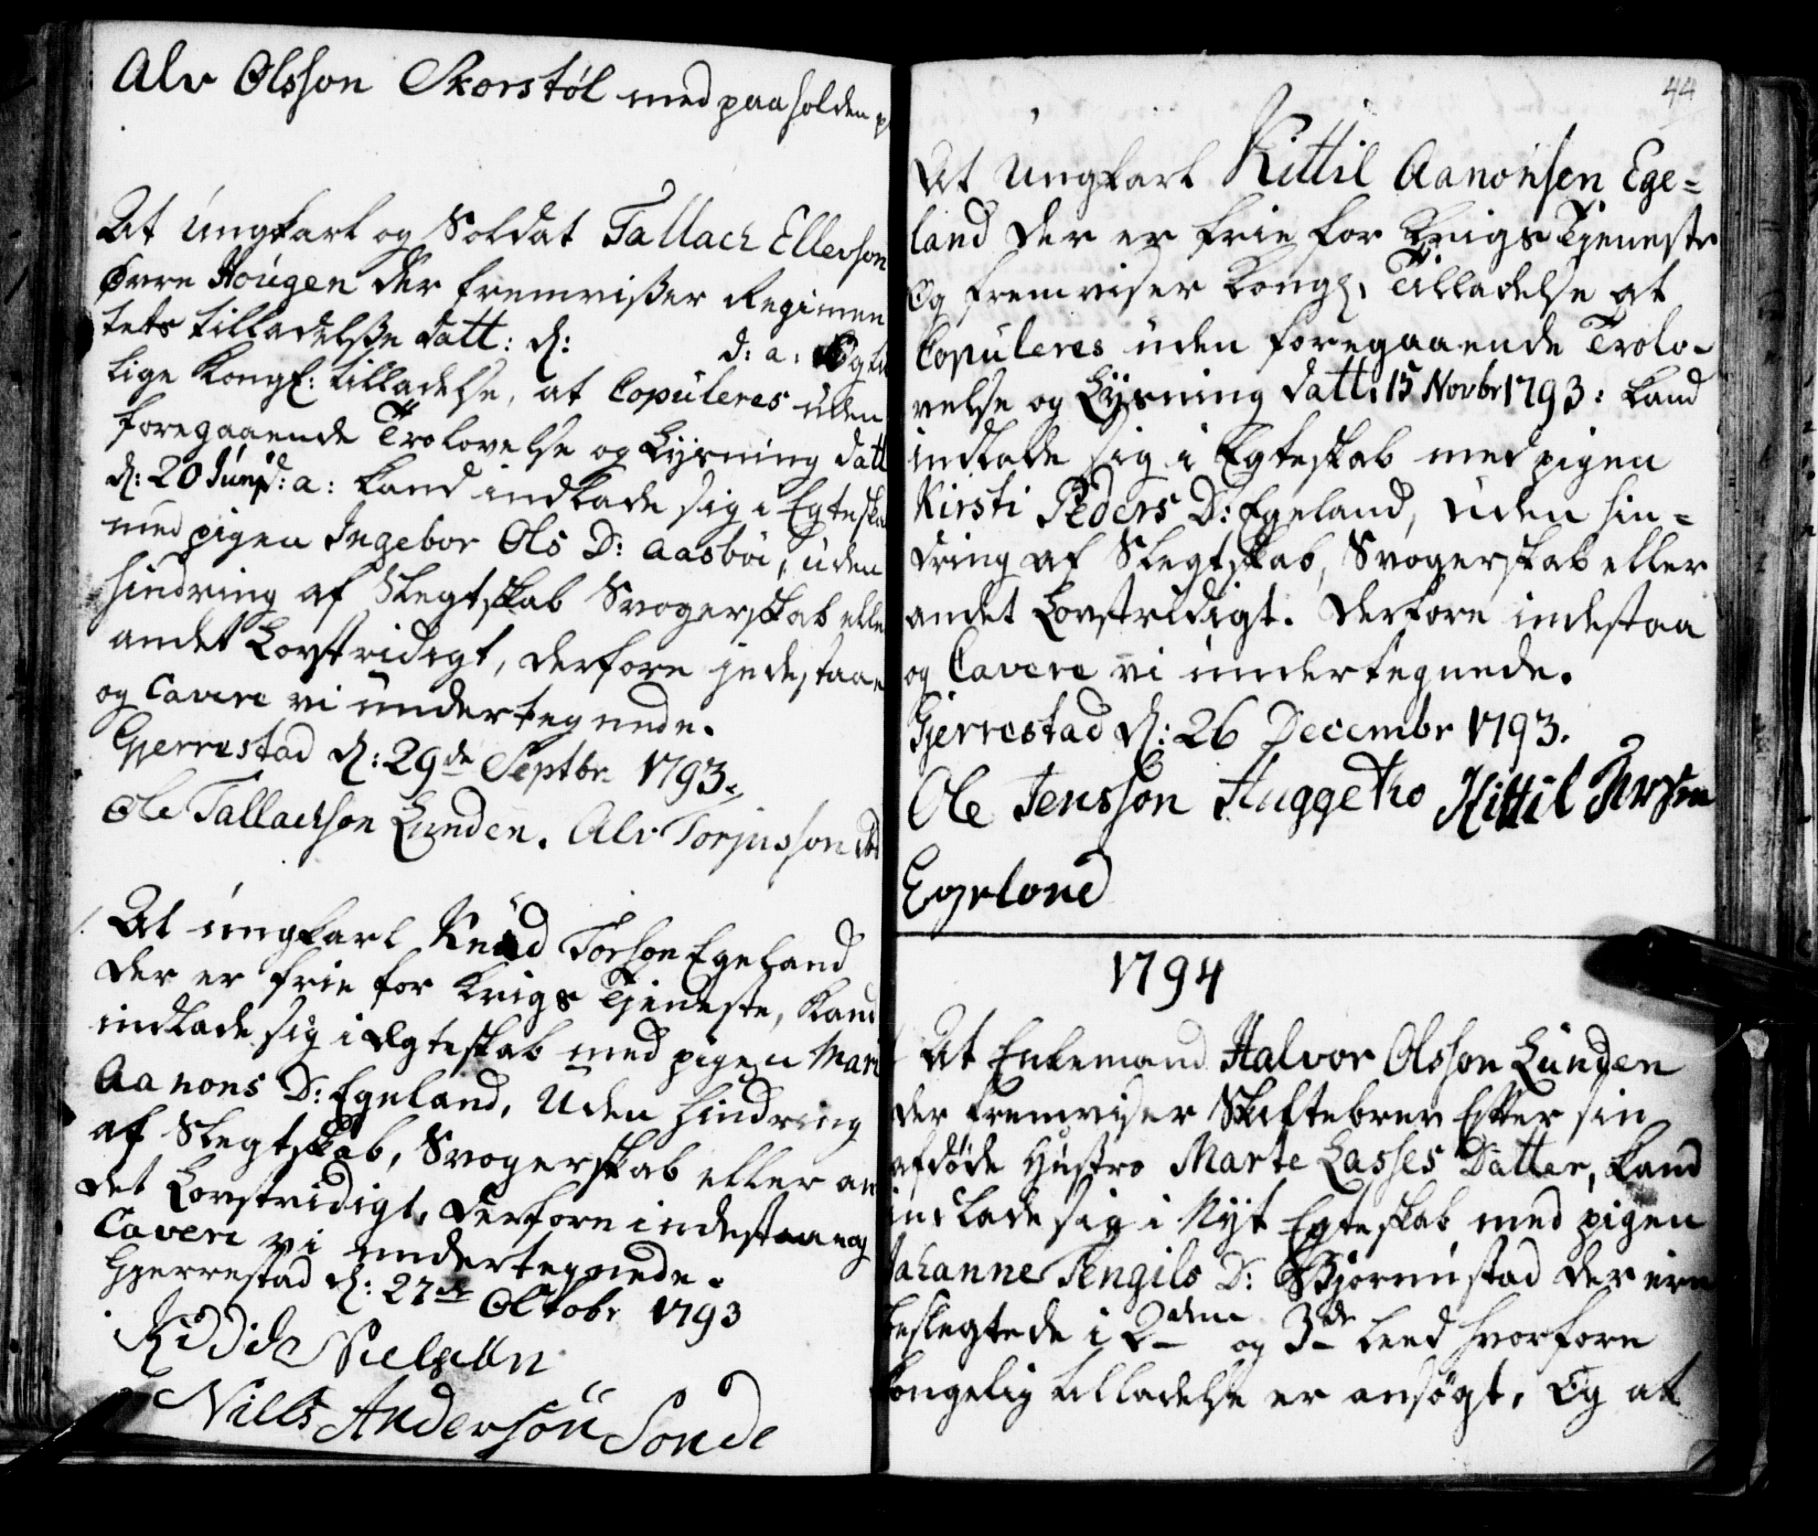 Alv Olsson Skorstøl med paaholden p
At Ungkarl og Soldat Tallach Ellevson
Øvre Hougen der fremvißer Regimen
tets tilladelße datt: d: d: a: Og
lige Kongl: tilladelse, at Copuleres uden
foregaaende Trolovelse og Lysning datt
d: 20 Junij d: a: kand indlade sig i Egteska
med pigen Ingebor Ols D: Aasbøi, uden
hindring af Slegtskab Svogerskab elle
andet Lovstridigt, derfore indestaae
og Cavere vi undertegnede.
Gjerrestad d: 29de Septbr 1793.
Ole Tallachson Lunden. Alv Torjusson
At ungkarl Knud Torson Egeland
der er frie for Krigs Tjeneste, kand
indlade sig i Egteskab med pigen Mari
Aanons D: Egeland, Uden hindring
af Slegtskab, Svogerskab eller an
det Lovstridigt, derfore indestaae og
Cavere vi undertegnede.
Gjerrestad d: 27de Oktobr 1793
Nielsøn
Niels Andersøn Sonde
44
At Ungkarl Kittil Aanonsen Ege=
land der er frie for Krigs Tjeneste
Og fremviser Kongl. Tilladelse at
Copuleres uden foregaaende Trolo-
velse og Lysning datt: 15 Novbr 1793: kand
indlade sig i Egteskab med pigen
Kirsti Peders D: Egeland, uden hin=
dring af Slegtskab, Svogerskab eller
andet Lovstridigt. Derfore indestaa
og Cavere vi undertegnede.
Gjerrestad d: 26 Decembr 1793.
Ole Jensson Huggetho Kittil
Egelond
1794
At Enkemand Halvor Olsson Lunden
der fremviser Skiftebrev Efter sin
afdøde Hustro Marte Lasses Datter, kand
indlade sig i Nyt Egteskab med pigen
Johanne Tengils D: Bjornustad der ere
beslegtede i 2den og 3de leed hvorfore
kongelig tilladelse er ansøgt, Og at